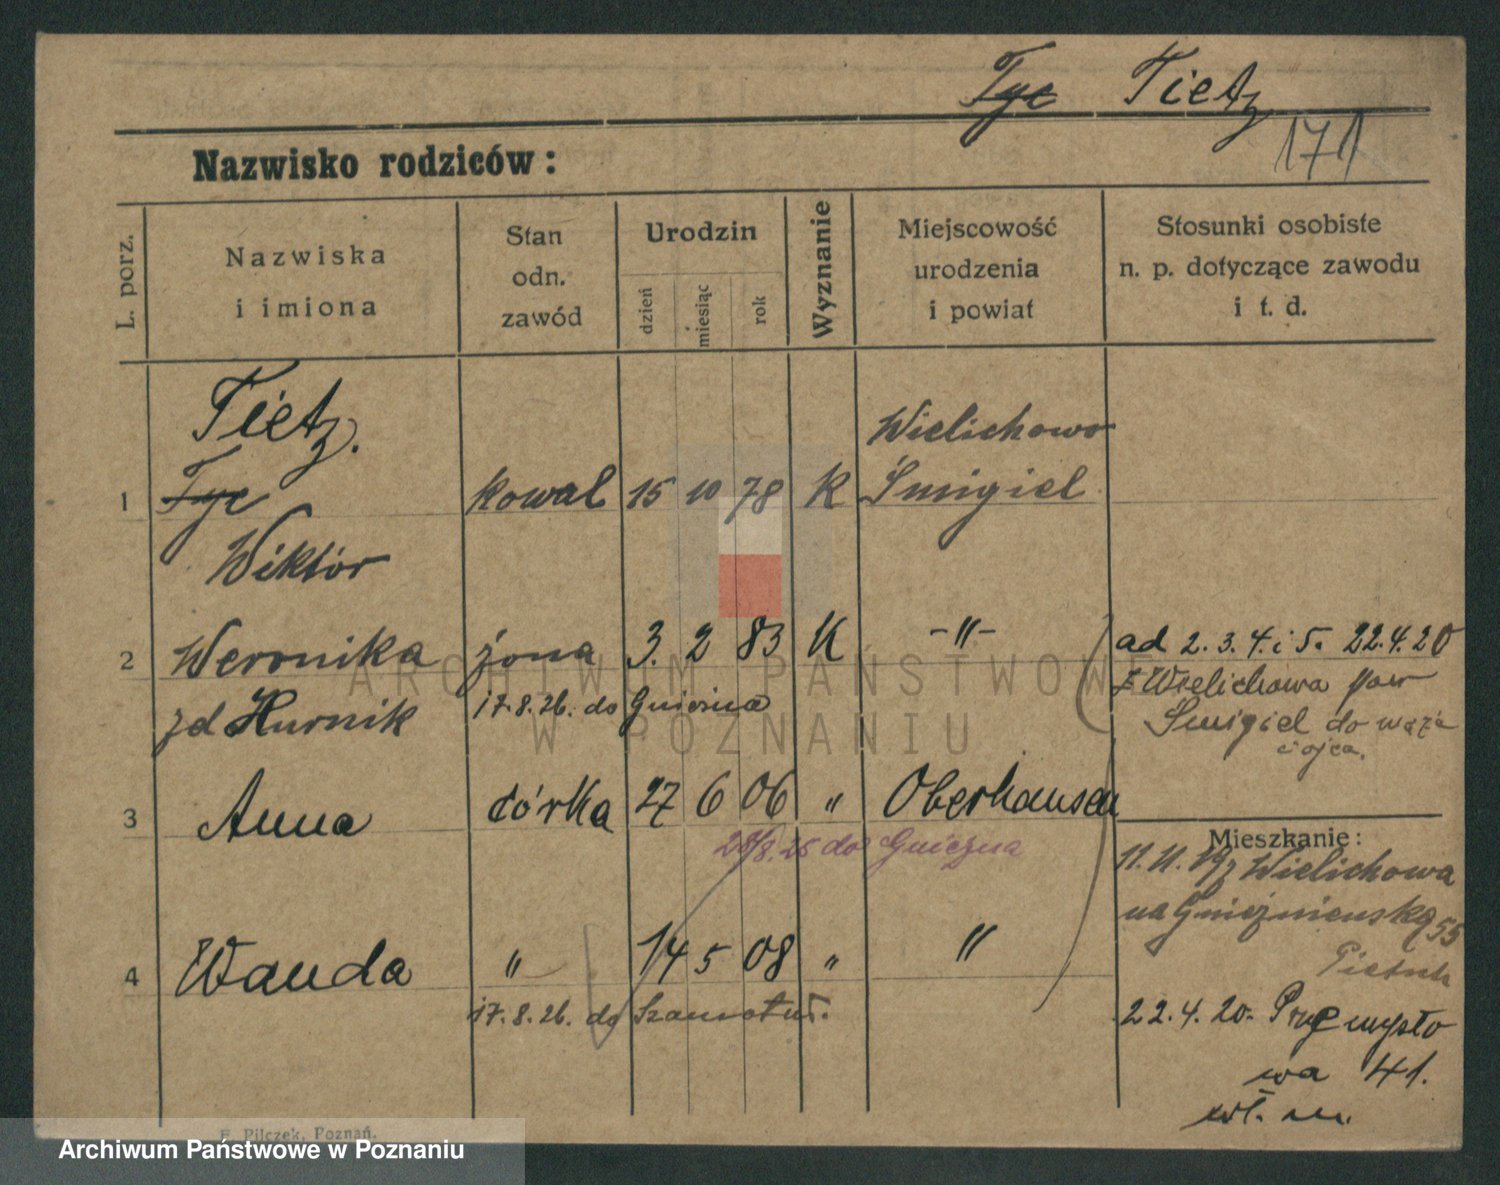 Tyc Tietz
171
Nazwisko rodziców:
L. porz.
Nazwiska
i imiona
Stan
odn.
zawód
Urodzin
dzień
miesiąc
rok
Wyznanie
Miejscowość
urodzenia
i powiat
Stosunki osobiste
n. p. dotyczące zawodu
i t. d.
Tietz.
Wielichowo
1 Tyc kowal 15 10 78 K Śmigiel
Wiktór
2 Weronika żona 3. 2 83 K -"-
zd Hurnik 17.8.26. do Gniezna
ad 2. 3. 4. i 5. 22.4.20
z Wielichowa pow
Śmigiel do męża
i ojca.
3 Anna córka 27 6 06 " Oberhausen
28/8.26 do Gniezna
4 Wanda " 14 5 08 " "
17.8.26. do Szamotuł.
Mieszkanie:
11.11.19 z Wielichowa
na Gnieźnieńską 55
22.4.20. Przemysło
wa 41.
wł. m.
ARCHIWUM PAŃSTWOWE
W POZNANIU
F. Pilczek, Poznań.
Archiwum Państwowe w Poznaniu